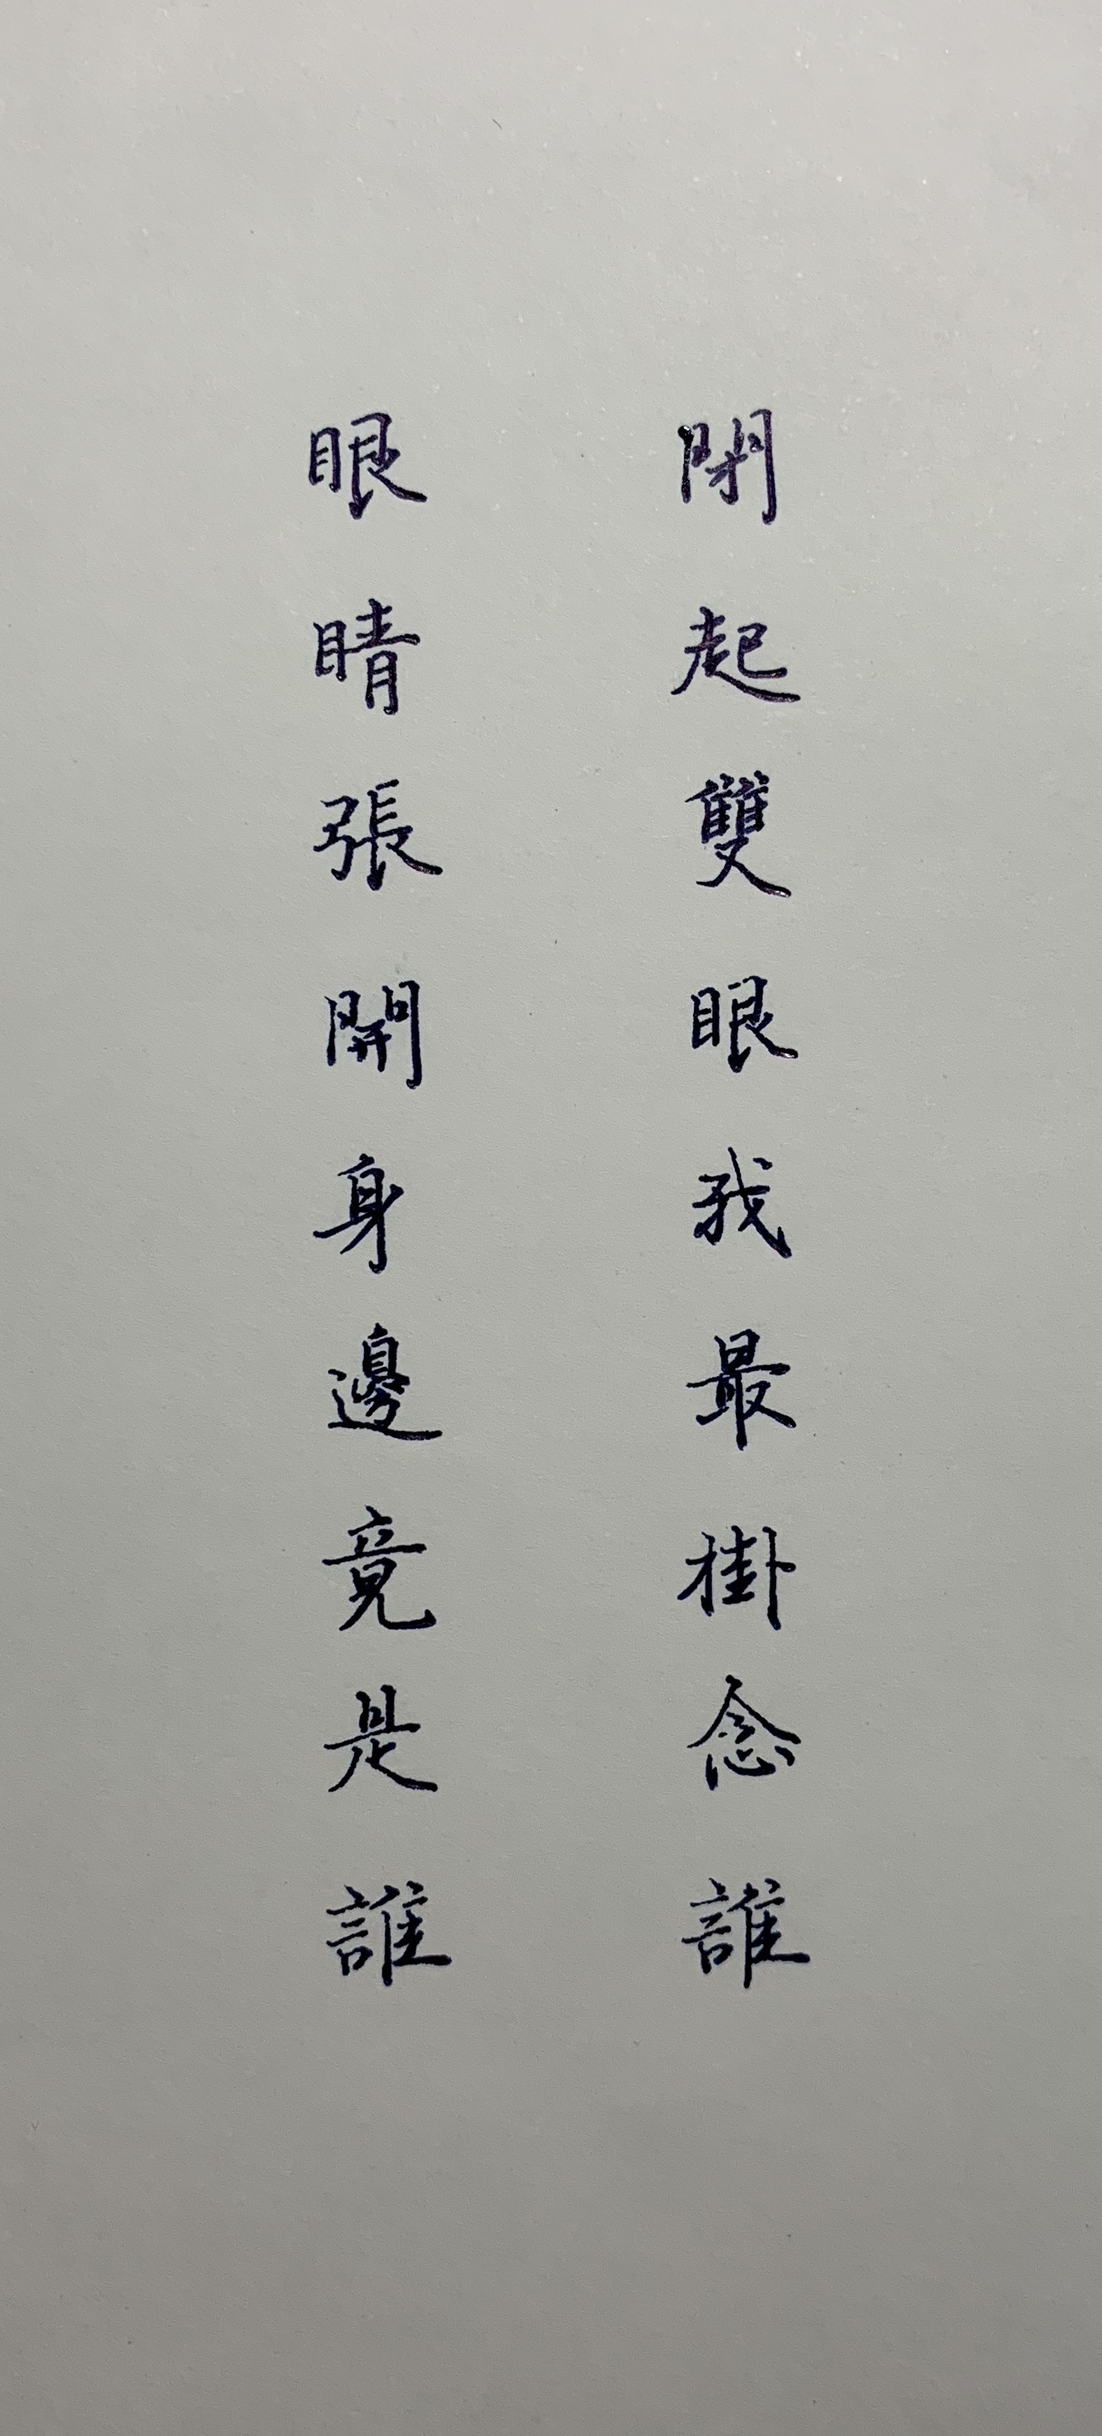 閉起雙眼我最掛念誰
眼睛張開身邊竟是誰